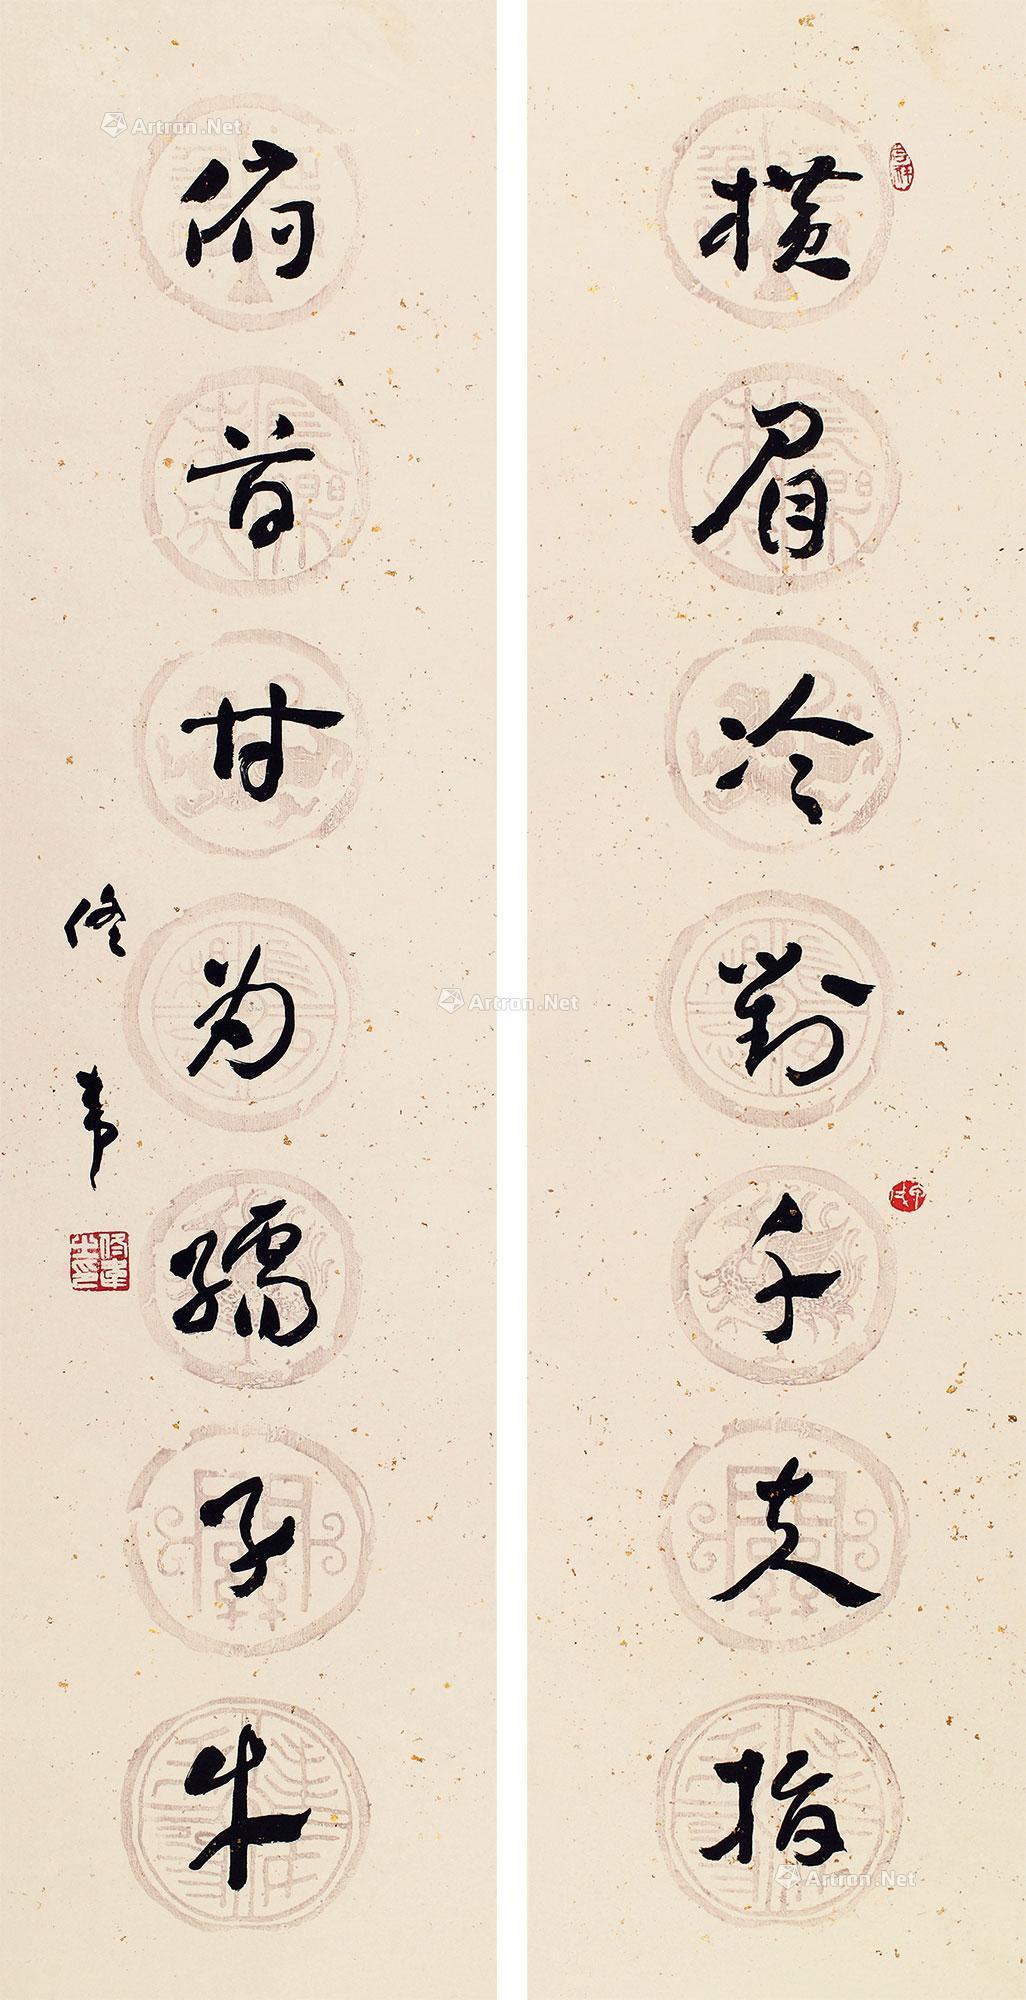 横眉冷對千夫指
俯首甘为孺子牛
佟韦
佟韋之印
Artron.Net
Artron.Net
Artron.Net